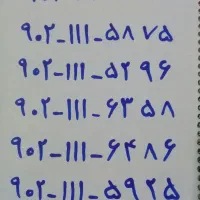 ۹۰۲_۱۱۱_۵۸۷۵
۹۰۲_۱۱۱_۵۲۹۶
۹۰۲_۱۱۱_۶۳۵۸
۹۰۲_۱۱۱_۶۴۸۶
۹۰۲_۱۱۱_۵۹۲۵